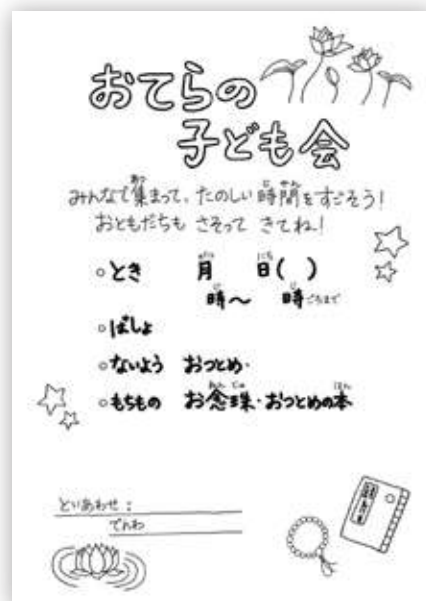 おてらの
子ども会
みんなで集まって、たのしい時間をすごそう!
おともだちも さそって きてね!
○とき 月 日( )
時〜 時ごろまで
○ばしょ
○ないよう おつとめ・
○もちもの お念珠・おつとめの本
といあわせ:
でんわ